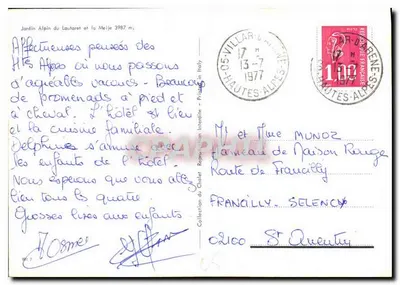 Jardin Alpin du Lautaret et la Meije 3987 m.
Affectueuses pensées des
Htes Alpes où nous passons
d'agréables vacances - Beaucoup
de promenades à pied et
à cheval. L'hôtel est bien
et la cuisine familiale.
Delphine s'amuse avec
les enfants de l'hôtel.
Nous espérons que vous allez
bien tous les quatre.
Grosses bises aux enfants
05-VILLAR-D'ARENE
17 H
13-7
1977
HAUTES-ALPES
1,00
Mr et Mme MUNOZ
Hameau de Maison Rouge
Route de Francilly
FRANCILLY-SELENCY
02100 St Quentin